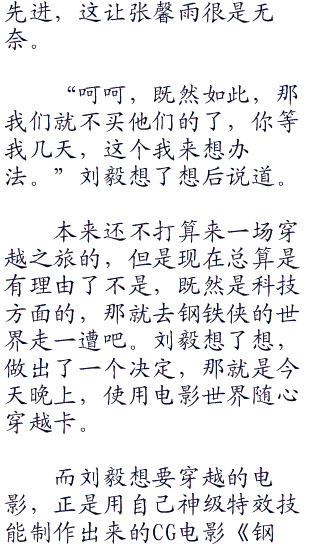 先进，这让张馨雨很是无
奈。
“呵呵，既然如此，那
我们就不买他们的了，你等
我几天，这个我来想办
法。”刘毅想了想后说道。
本来还不打算来一场穿
越之旅的，但是现在总算是
有理由了不是，既然是科技
方面的，那就去钢铁侠的世
界走一遭吧。刘毅想了想，
做出了一个决定，那就是今
天晚上，使用电影世界随心
穿越卡。
而刘毅想要穿越的电
影，正是用自己神级特效技
能制作出来的CG电影《钢